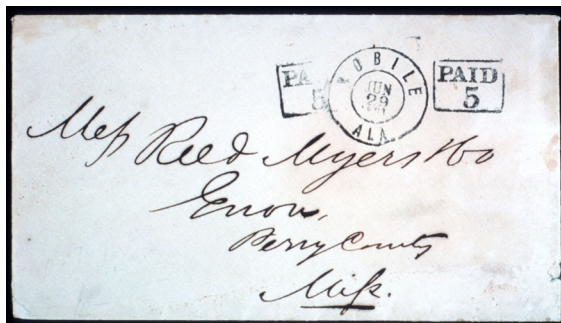 PAID
5
MOBILE
JUN
29
ALA.
PAID
5
Mess Reed Myers & Co
Enon,
Perry County
Miss.